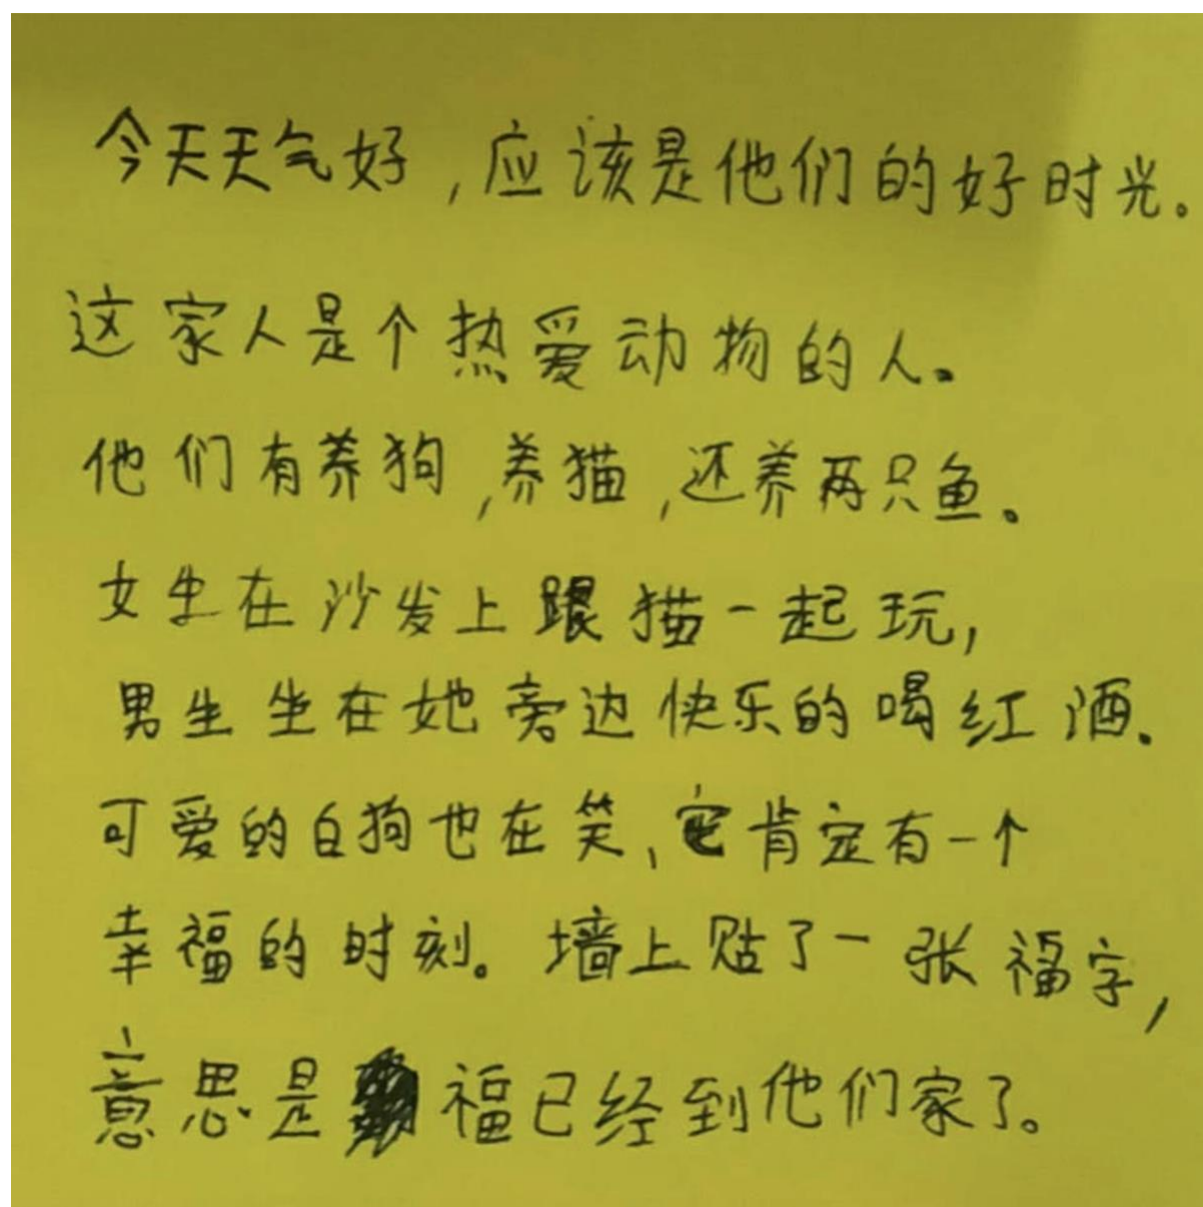 今天天气好,应该是他们的好时光。
这家人是个热爱动物的人。
他们有养狗,养猫,还养两只鱼。
女生在沙发上跟猫一起玩,
男生坐在她旁边快乐的喝红酒.
可爱的白狗也在笑,它肯定有一个
幸福的时刻。墙上贴了一张福字,
意思是福已经到他们家了。